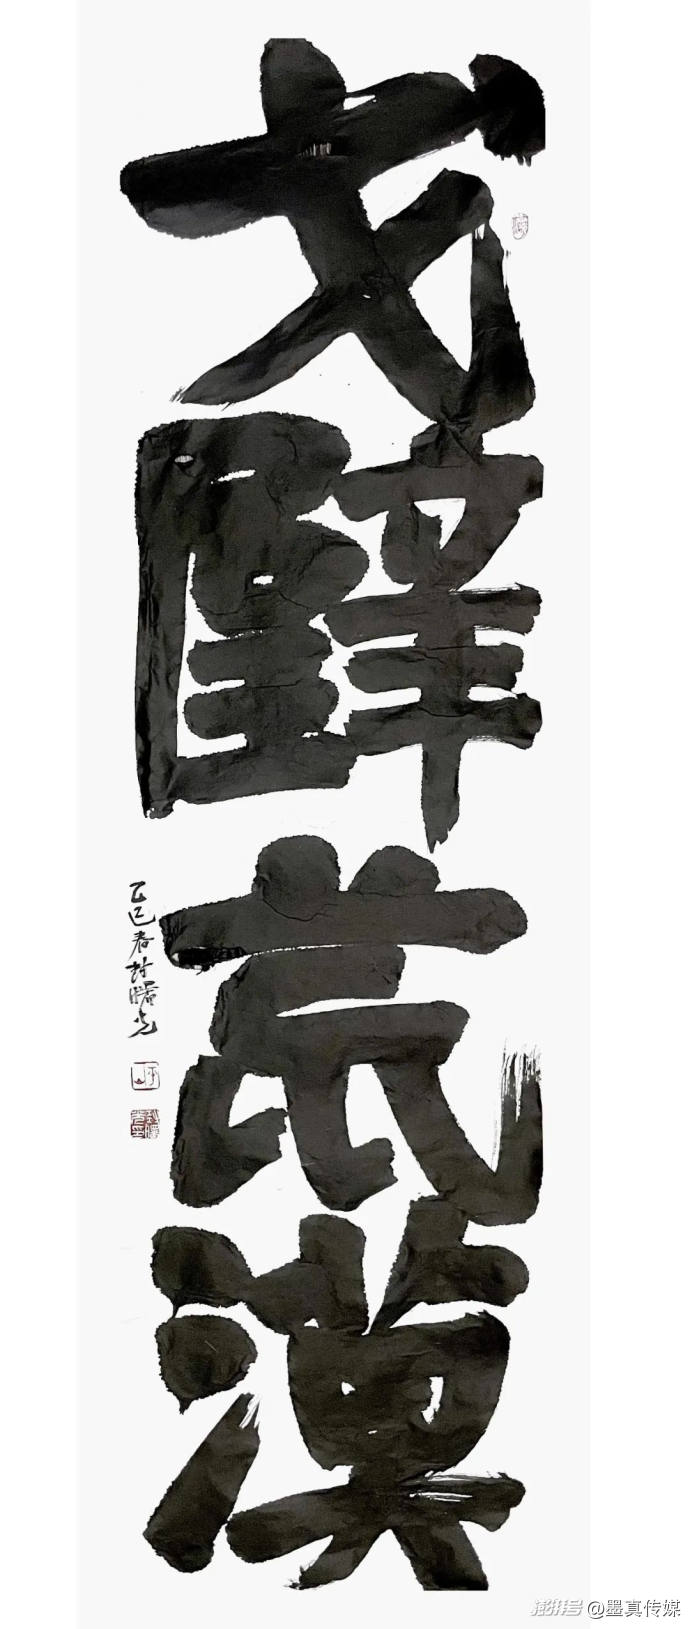 戈壁荒漠
乙巳春封曙光
澎湃号 @墨真传媒